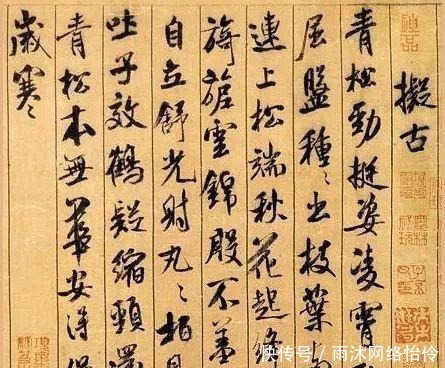 擬古
青松勁挺姿凌霄
屈盤種〻出枝葉
連上松端秋花起絳
旖旎雲錦殷不羞
自立舒光射丸〻柏見
吐子效鶴疑縮頸還
青松本無華安得保
歲寒〻
神品
快传号 / 雨沐网络怡伶